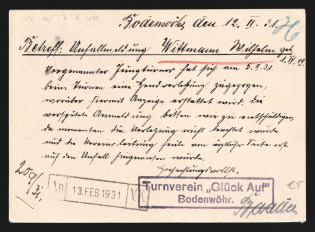 Bodenwöhr, den 12. II. 31.
Betreff: Unfallmeldung Wittmann Wilhelm geb.
Vorgenannter Jungturner hat sich am 5.2.31
beim turnen eine Handverletzung zugezogen,
worüber hiermit Anzeige erstattet wird. Die
verspätete Anmeldung bitten wir zu entschuldigen,
da momentan die Verletzung nicht beachtet wurde
und die Vereinsleitung von ärztlicher Seite erst
auf den Unfall hingewiesen wurde.
Hochachtungsvollst.
209/31.
13. FEB 1931
Turnverein „Glück Auf"
Bodenwöhr.